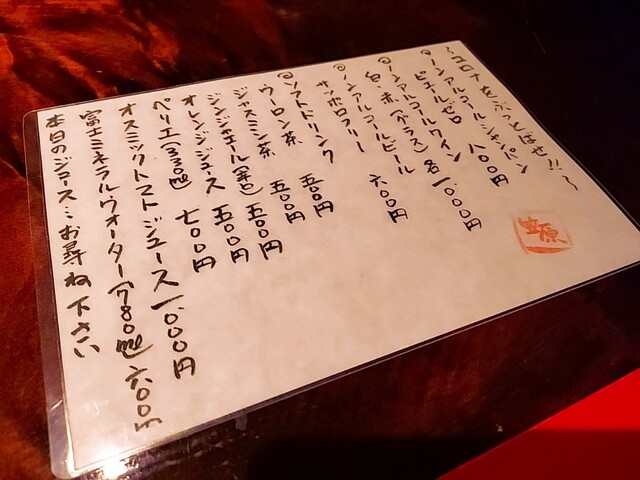 〜コロナをぶっとばせ!!〜
◎ノンアルコールシャンパン
ピエルゼロ 八〇〇円
◎ノンアルコールワイン
白・赤(グラス)各一、〇〇〇円
◎ノンアルコールビール
サッポロフリー 六〇〇円
◎ソフトドリンク
ウーロン茶 五〇〇円
ジャスミン茶 五〇〇円
ジンジャエール(辛口)五〇〇円
オレンジジュース 五〇〇円
ペリエ(330ml) 七〇〇円
オスミックトマトジュース 一、〇〇〇円
富士ミネラルウォーター(780ml)六〇〇円
本日のジュース…お尋ね下さい
笠原